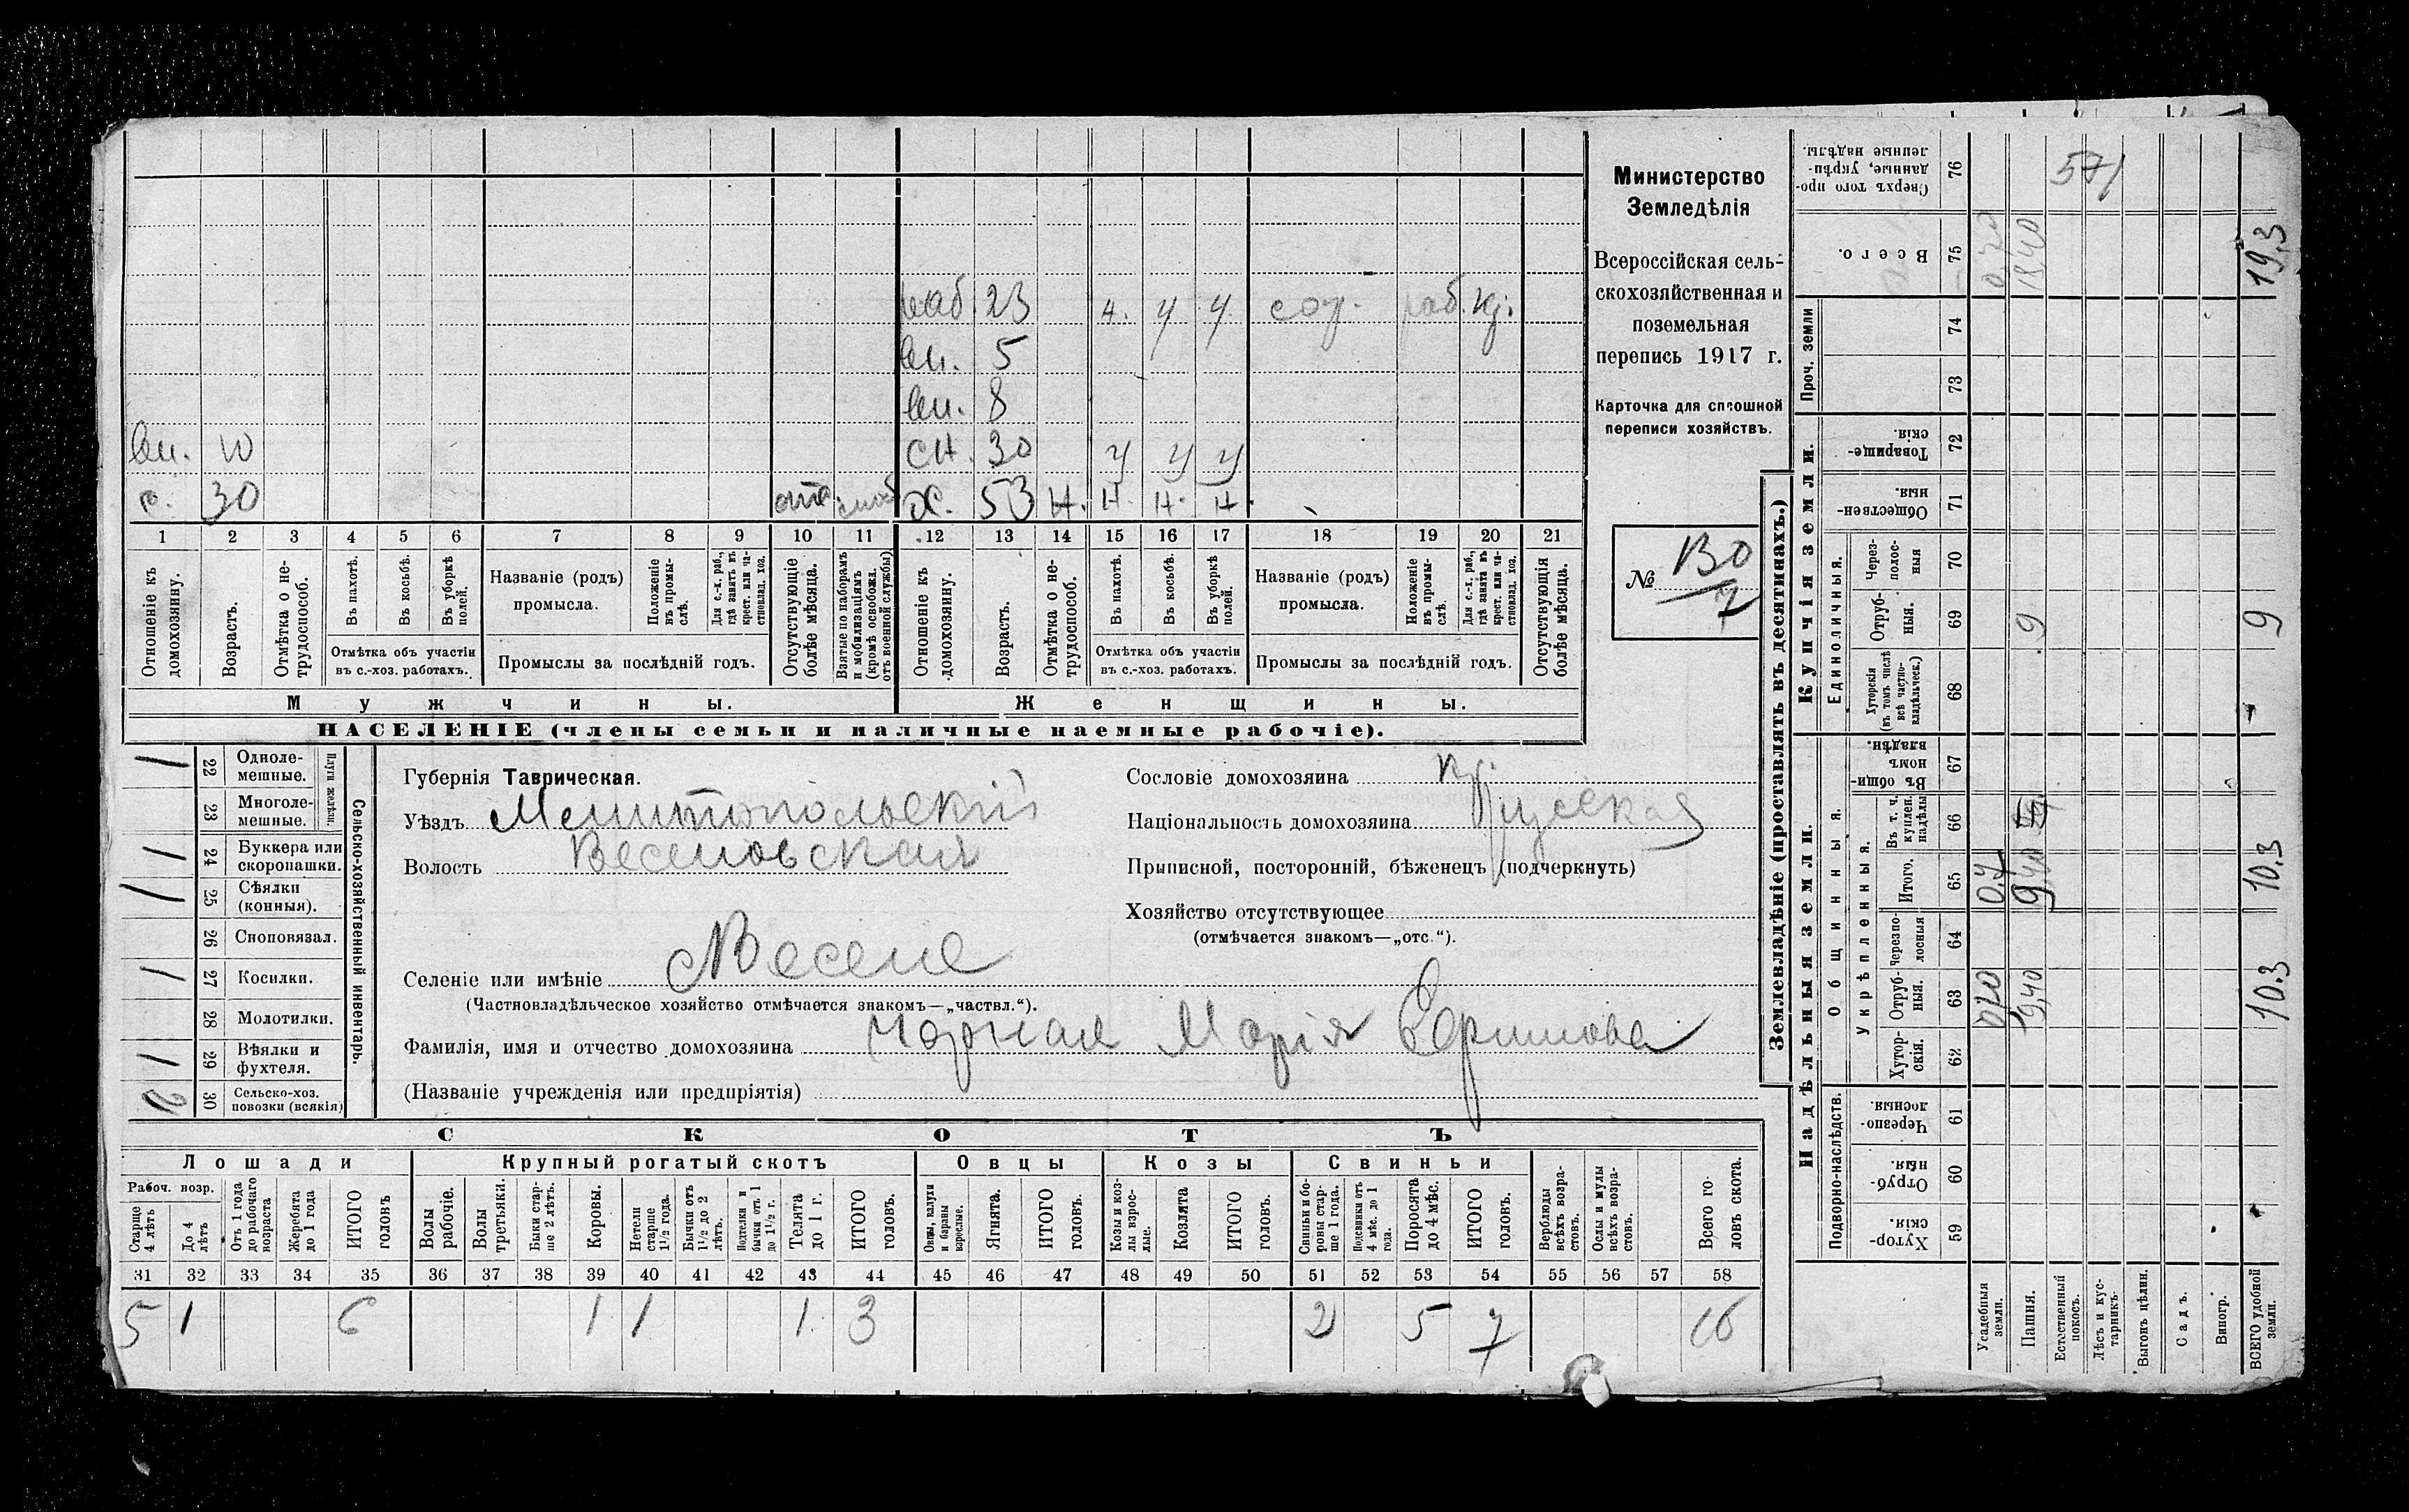 наб. 23 ч. у у раб. кр.
вн. 5
вн. 8
вн. 10
сн. 30 у у у
с. 30
х. 53 н. н. н. н.
1 2 3 4 5 6 7 8 9 10 11 12 13 14 15 16 17 18 19 20 21
Отношеніе къ домохозяину.
Возрастъ.
Отмѣтка о не-трудоспособ.
Въ пахотѣ.
Въ косьбѣ.
Въ уборкѣ полей.
Отмѣтка объ участіи въ с.-хоз. работахъ.
Названіе (родъ) промысла.
Положеніе въ промы-слѣ.
Для с.-х. раб., гдѣ занятъ въ крест. или ча-стновлад. хоз.
Промыслы за послѣдній годъ.
Отсутствующіе болѣе мѣсяца.
Взятые по наборамъ и мобилизаціямъ (кромѣ освобожд. отъ военной службы)
Отношеніе къ домохозяину.
Возрастъ.
Отмѣтка о не-трудоспособ.
Въ пахотѣ.
Въ косьбѣ.
Въ уборкѣ полей.
Отмѣтка объ участіи въ с.-хоз. работахъ.
Названіе (родъ) промысла.
Положеніе въ промы-слѣ.
Для с.-х. раб., гдѣ занята въ крест. или ча-стновлад. хоз.
Промыслы за послѣдній годъ.
Отсутствующія болѣе мѣсяца.
Мужчины.
Женщины.
НАСЕЛЕНІЕ (члены семьи и наличные наемные рабочіе).
Министерство
Земледѣлія
Всероссійская сель-
скохозяйственная и
поземельная
перепись 1917 г.
Карточка для сплошной
переписи хозяйствъ.
№ 130
7
Сельско-хозяйственный инвентарь.
Плуги желѣзн.
22 Одноле-мешные. 1
23 Многоле-мешные.
24 Буккера или скоропашки. 1
25 Сѣялки (конныя). 1
26 Сноповязал.
27 Косилки. 1
28 Молотилки.
29 Вѣялки и фухтеля. 1
30 Сельско-хоз. повозки (всякія)
Губернія Таврическая.
Уѣздъ Мелитопольскій
Волость Веселовская
Селеніе или имѣніе Веселе
(Частновладѣльческое хозяйство отмѣчается знакомъ—„частвл.“).
Фамилія, имя и отчество домохозяина Чорная Марія Ефимова
(Названіе учрежденія или предпріятія)
Сословіе домохозяина кр.
Національность домохозяина Русская
Приписной, посторонній, бѣженецъ (подчеркнуть)
Хозяйство отсутствующее
(отмѣчается знакомъ—„отс.“).
СКОТЪ
Лошади Крупный рогатый скотъ Овцы Козы Свиньи
Рабоч. возр.
Старше 4 лѣтъ
До 4 лѣтъ
Отъ 1 года до рабочаго возраста
Жеребята до 1 года
ИТОГО головъ
Волы рабочіе.
Волы третьяки.
Быки стар-ше 2 лѣтъ.
Коровы.
Нетели старше 1½ года.
Бычки отъ 1½ до 2 лѣтъ.
Подтелки и бычки отъ 1 до 1½ г.
Телята до 1 г.
ИТОГО головъ.
Овцы, валухи и бараны взрослые.
Ягнята.
ИТОГО головъ.
Козы и коз-лы взрос-лые.
Козлята
ИТОГО головъ.
Свиньи и бо-ровы стар-ше 1 года.
Подсвинки отъ 4 мѣс. до 1 года.
Поросята до 4 мѣс.
ИТОГО головъ.
Верблюды всѣхъ возра-стовъ.
Ослы и мулы всѣхъ возра-стовъ.
Всего го-ловъ скота.
31 32 33 34 35 36 37 38 39 40 41 42 43 44 45 46 47 48 49 50 51 52 53 54 55 56 57 58
5 1 6 1 1 1 3 2 5 7 16
Землевладѣніе (проставлять въ десятинахъ.)
Надѣльныя земли.
Купчія земли.
Проч. земли
Подворно-наслѣдств.
Общинныя.
Укрѣпленныя.
Единоличныя.
Хутор-скія. 59
Отруб-ныя. 60
Черезпо-лосныя. 61
Хутор-скія. 62
Отруб-ныя. 63
Черезпо-лосныя 64
Итого. 65
Въ т. ч. куплен. надѣлы 66
Въ общин-номъ владѣн. 67
Хуторскія (въ томъ числѣ всѣ частно-владѣльческ.) 68
Отруб-ныя. 69
Через-полос-ныя 70
Обществен-ныя. 71
Товарище-скія. 72
73
74
Всего. 75
Сверхъ того про-данные, укрѣп-ленные надѣлы. 76
Усадебныя земли. 0,7
Пашня. 9,40 9 18,40
Естественный покосъ.
Лѣсъ и кус-тарникъ.
Выгонъ цѣлин.
Садъ.
Виногр.
ВСЕГО удобной земли. 10.3 10.3 9 19,3
571